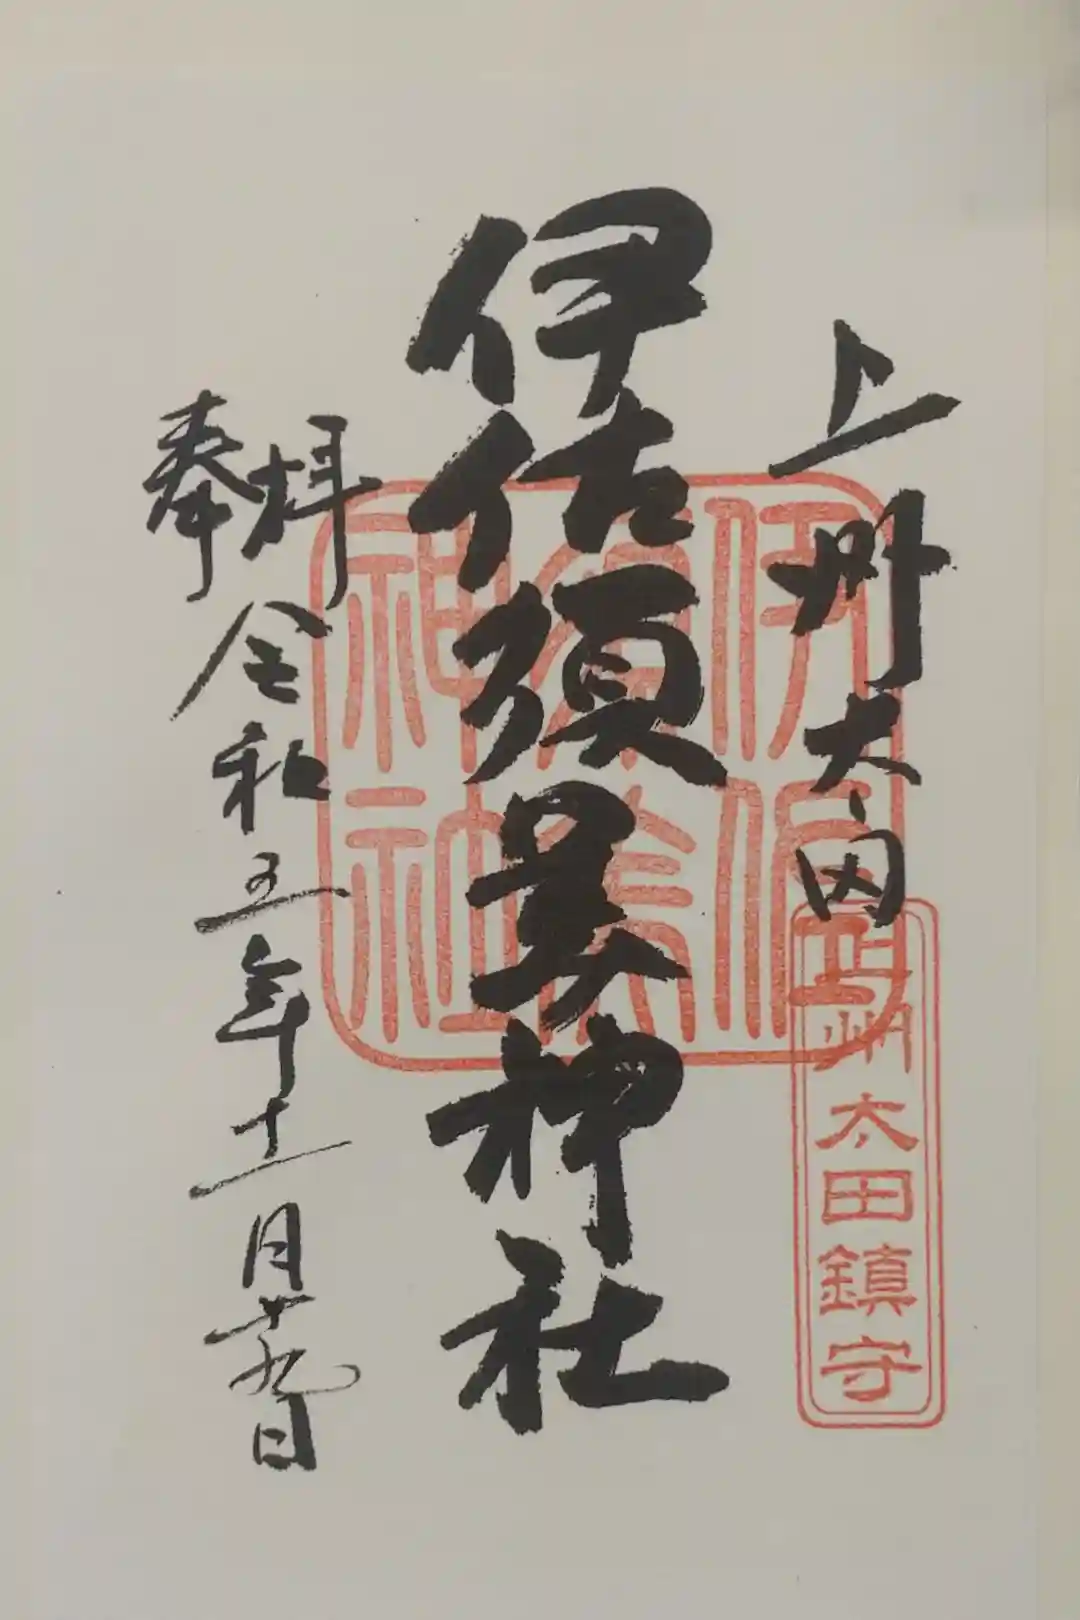 上州太田
上州太田鎮守
伊佐須美神社
伊佐
須美
神社
奉拝
令和五年十一月十九日